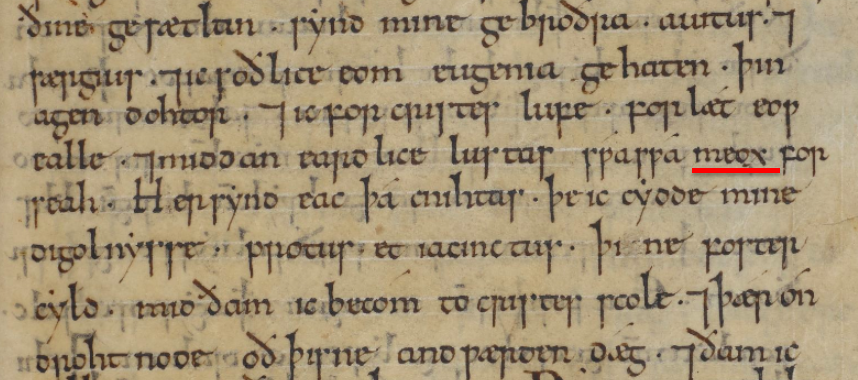 ðine gesætlan · synd mine gebroðra · auitus · ⁊
særgius · ⁊ ic soðlice eom eugenia gehaten · þin
agen dohtor · ⁊ ic for cristes lufe · forlæt eoƿ
ealle · ⁊ middan eardlice lustas sƿa sƿa meox for
seah · Her synd eac þa cnihtas · þe ic cyðde mine
digolnysse · protus · et iacinctus · þine foster
cyld · mid ðam ic becom to cristes scole · ⁊ þær on
drohtnode oð þisne andƿerden dæg · ⁊ ðam ic